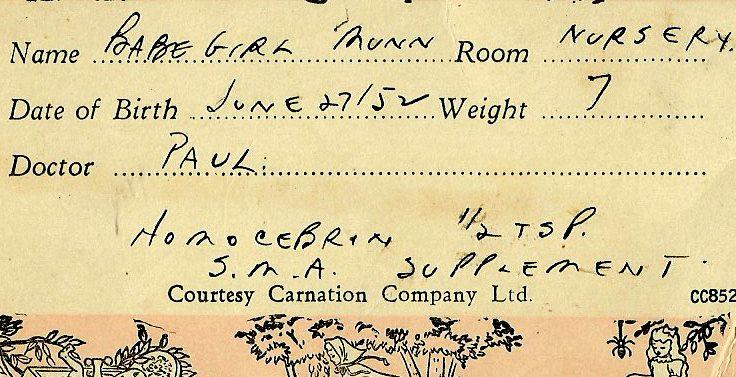 Name BABE GIRL MUNN Room NURSERY.
Date of Birth JUNE 27/52 Weight 7
Doctor PAUL.
HOMOCEBRIN 1/2 TSP.
S.M.A. SUPPLEMENT.
Courtesy Carnation Company Ltd. CC852